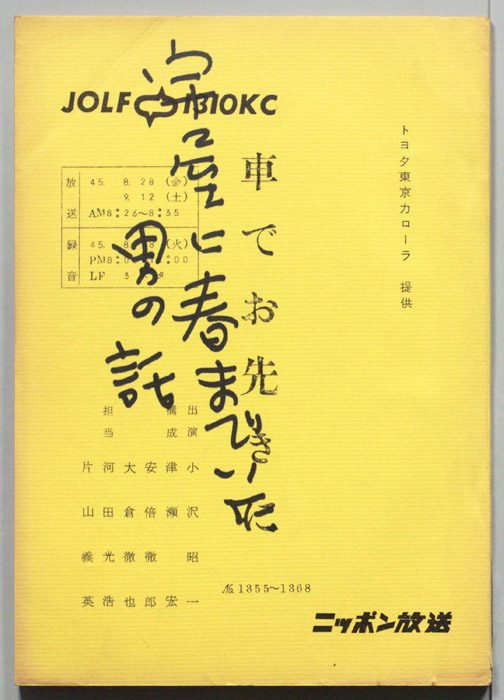 JOLF 1310KC
トヨタ東京カローラ 提供
車でお先
放送 45. 8.28 (金)
9.12 (土)
AM8:26~8:35
録音 45. 8. (火)
PM8: :00
LF 3
に春ま
男の話
出演 小沢昭一
構成 津瀬宏
安倍徹郎
大倉徹也
担当 河田光浩
片山義英
№1355~1368
ニッポン放送